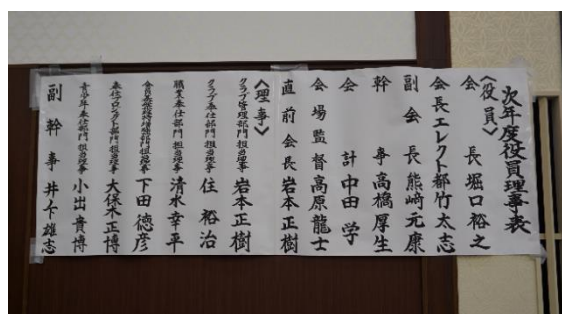 次年度役員理事表
〈役員〉
会長 堀口裕之
会長エレクト 都竹太志
副会長 熊﨑元康
幹事 高橋厚生
会計 中田学
会場監督 高原龍士
直前会長 岩本正樹
〈理事〉
クラブ管理部門担当理事 岩本正樹
クラブ奉仕部門担当理事 住裕治
職業奉仕部門担当理事 清水幸平
会員基盤維持増強部門担当理事 下田徳彦
奉仕プロジェクト部門担当理事 大保木正博
青少年奉仕部門担当理事 小出貴博
副幹事 井下雄志